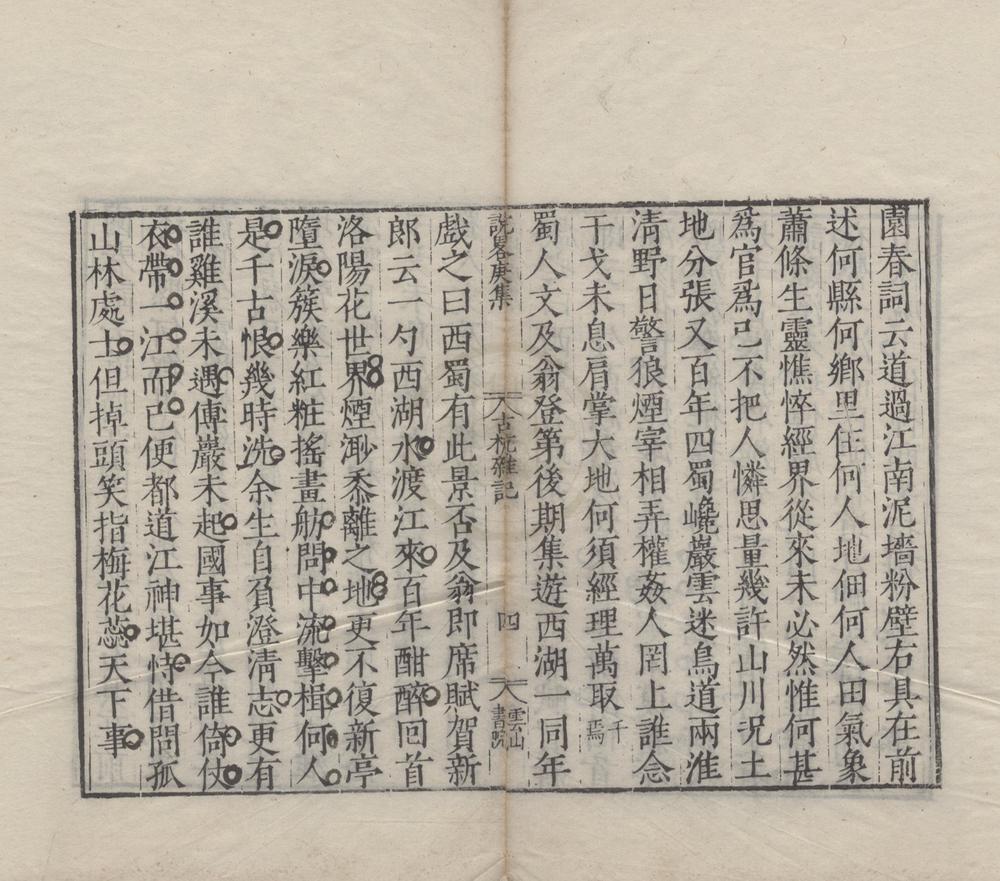 園春詞云道過江南泥墻粉壁右具在前
述何縣何鄉里住何人地佃何人田氣象
蕭條生靈憔悴經界從來未必然惟何甚
爲官爲己不把人憐思量幾許山川况土
地分張又百年四蜀巉巖雲迷鳥道兩淮
淸野日警狼煙宰相弄權姦人罔上誰念
干戈未息肩掌大地何須經理萬取千焉
蜀人文及翁登第後期集遊西湖一同年
說畧庚集
古杭雜記
四
雲山書院
戲之曰西蜀有此景否及翁卽席賦賀新
郎云一勺西湖水渡江來百年酣醉回首
洛陽花世界煙渺黍離之地更不復新亭
墮淚簇樂紅粧搖畫舫問中流擊楫何人
是千古恨幾時洗余生自負澄淸志更有
誰磻溪未遇傅巖未起國事如今誰倚仗
衣帶一江而已便都道江神堪恃借問孤
山林處士但掉頭笑指梅花蕊天下事